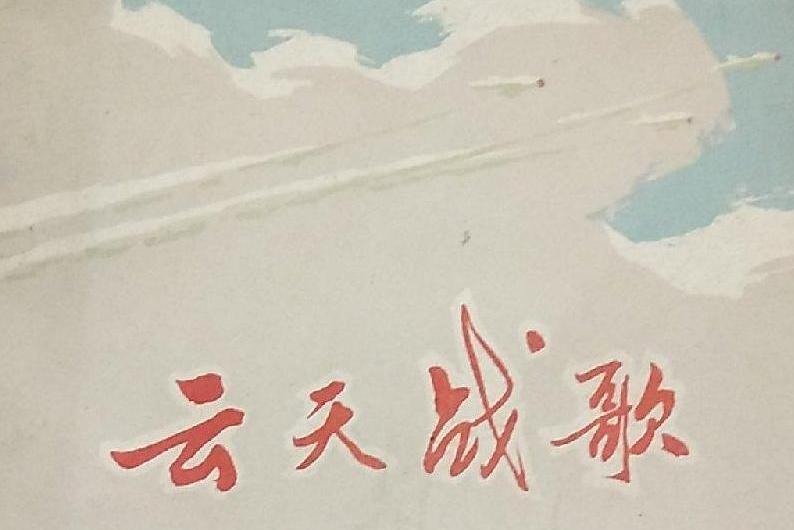 云天战歌